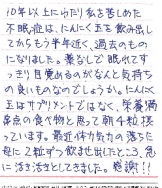 10年以上にわたり私を苦しめた
不眠症は、にんにく玉を飲み出し
てからもう半年近く、過去のもの
になりました。薬なしで眠れてす
っきり目覚めるのがなんと気持ち
の良いものなのでしょうか。にんにく
玉はサプリメントではなく、栄養満
点の食べ物と思って朝4粒摂
っています。最近、体力気力の落ちた
母に2粒ずつ飲ませ出したところ、急
に活き活きとしてきました。感謝!!